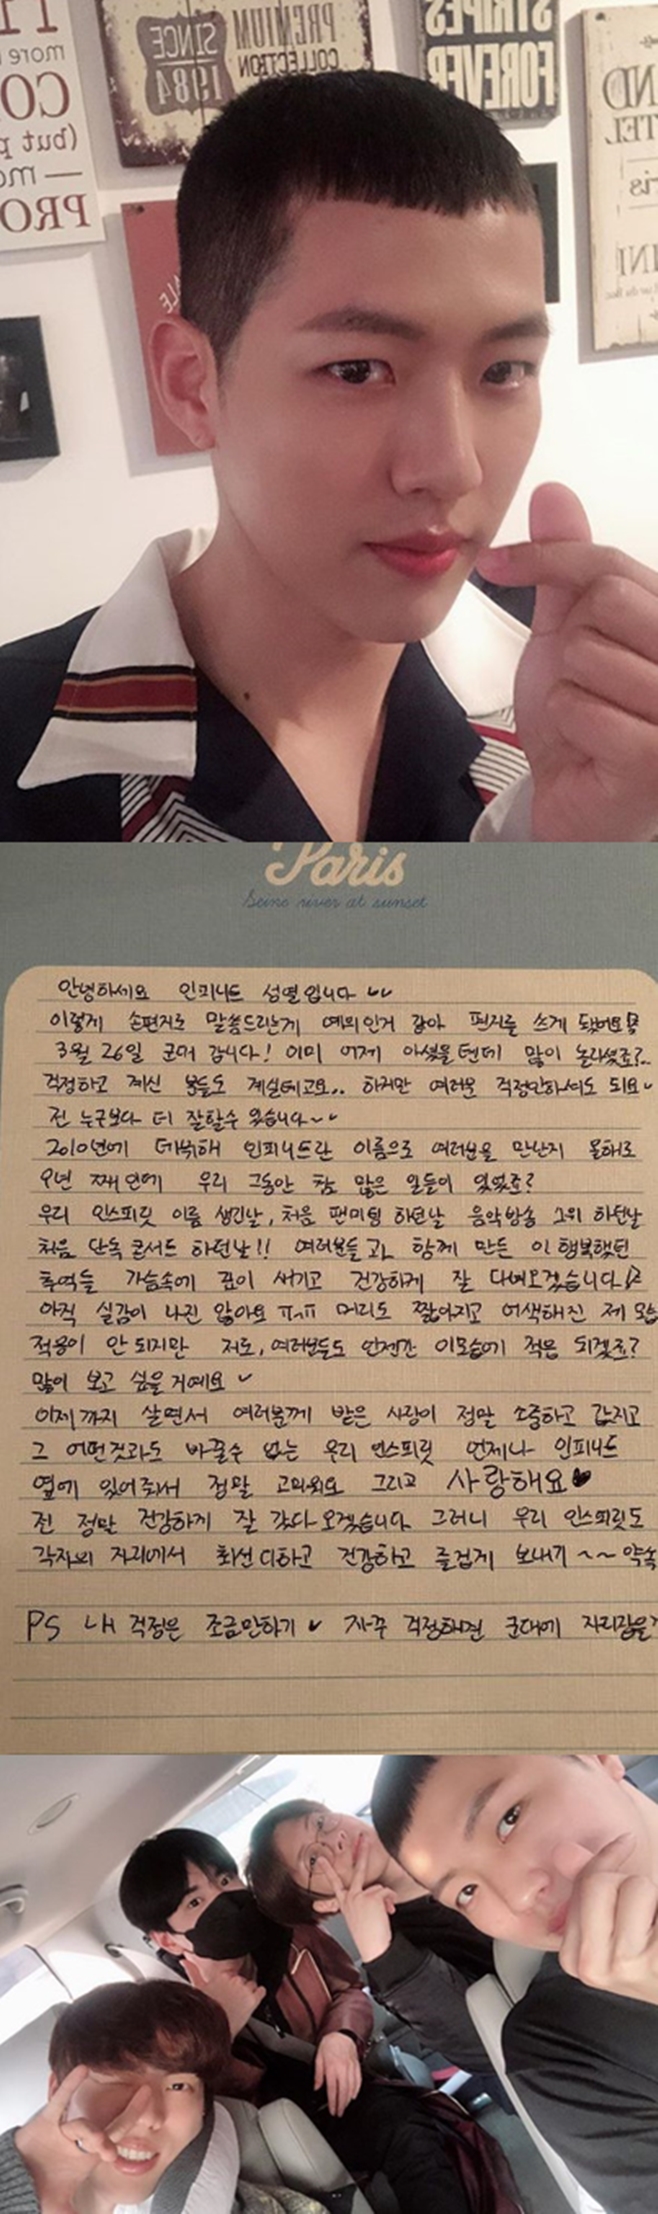 more
CO
(but p
mo
PRO
PREMIUM
COLLECTION
SINCE
1984
STRIPES
FOREVER
Paris
Seine river at sunset
안녕하세요 인피니트 성열입니다
이렇게 손편지로 말씀드리는게 예의인거 같아 편지를 쓰게 됐어요
3월 26일 군대 갑니다! 이미 어제 아셨을텐데 많이 놀라셨죠?..
걱정하고 계신 분들도 계실테고요.. 하지만 여러분 걱정안하셔도 되요
전 누구보다 더 잘할수 있습니다~
2010년에 데뷔해 인피니트란 이름으로 여러분을 만난지 올해로
9년 째인데 우리 그동안 참 많은 일들이 있었죠?
우리 인스피릿 이름 생긴날, 처음 팬미팅 하던날 음악방송 1위 하던날
처음 단독 콘서트 하던날!! 여러분들과 함께 만든 이 행복했던
추억들 가슴속에 깊이 새기고 건강하게 잘 다녀오겠습니다
아직 실감이 나진 않아요 ㅠㅠ 머리도 짧아지고 어색해진 제 모습
적응이 안 되지만 저도, 여러분들도 언젠간 이모습에 적응 되겠죠?
많이 보고 싶을 거예요
이제까지 살면서 여러분께 받은 사랑이 정말 소중하고 값지고
그 어떤것과도 바꿀수 없는 우리 인스피릿 언제나 인피니트
옆에 있어줘서 정말 고마워요 그리고 사랑해요♥
전 정말 건강하게 잘 갔다 오겠습니다 그러니 우리 인스피릿도
각자의 자리에서 최선 다하고 건강하고 즐겁게 보내기 ~~ 약속
PS 내 걱정은 조금만하기 자꾸 걱정하면 군대에 자리잡을